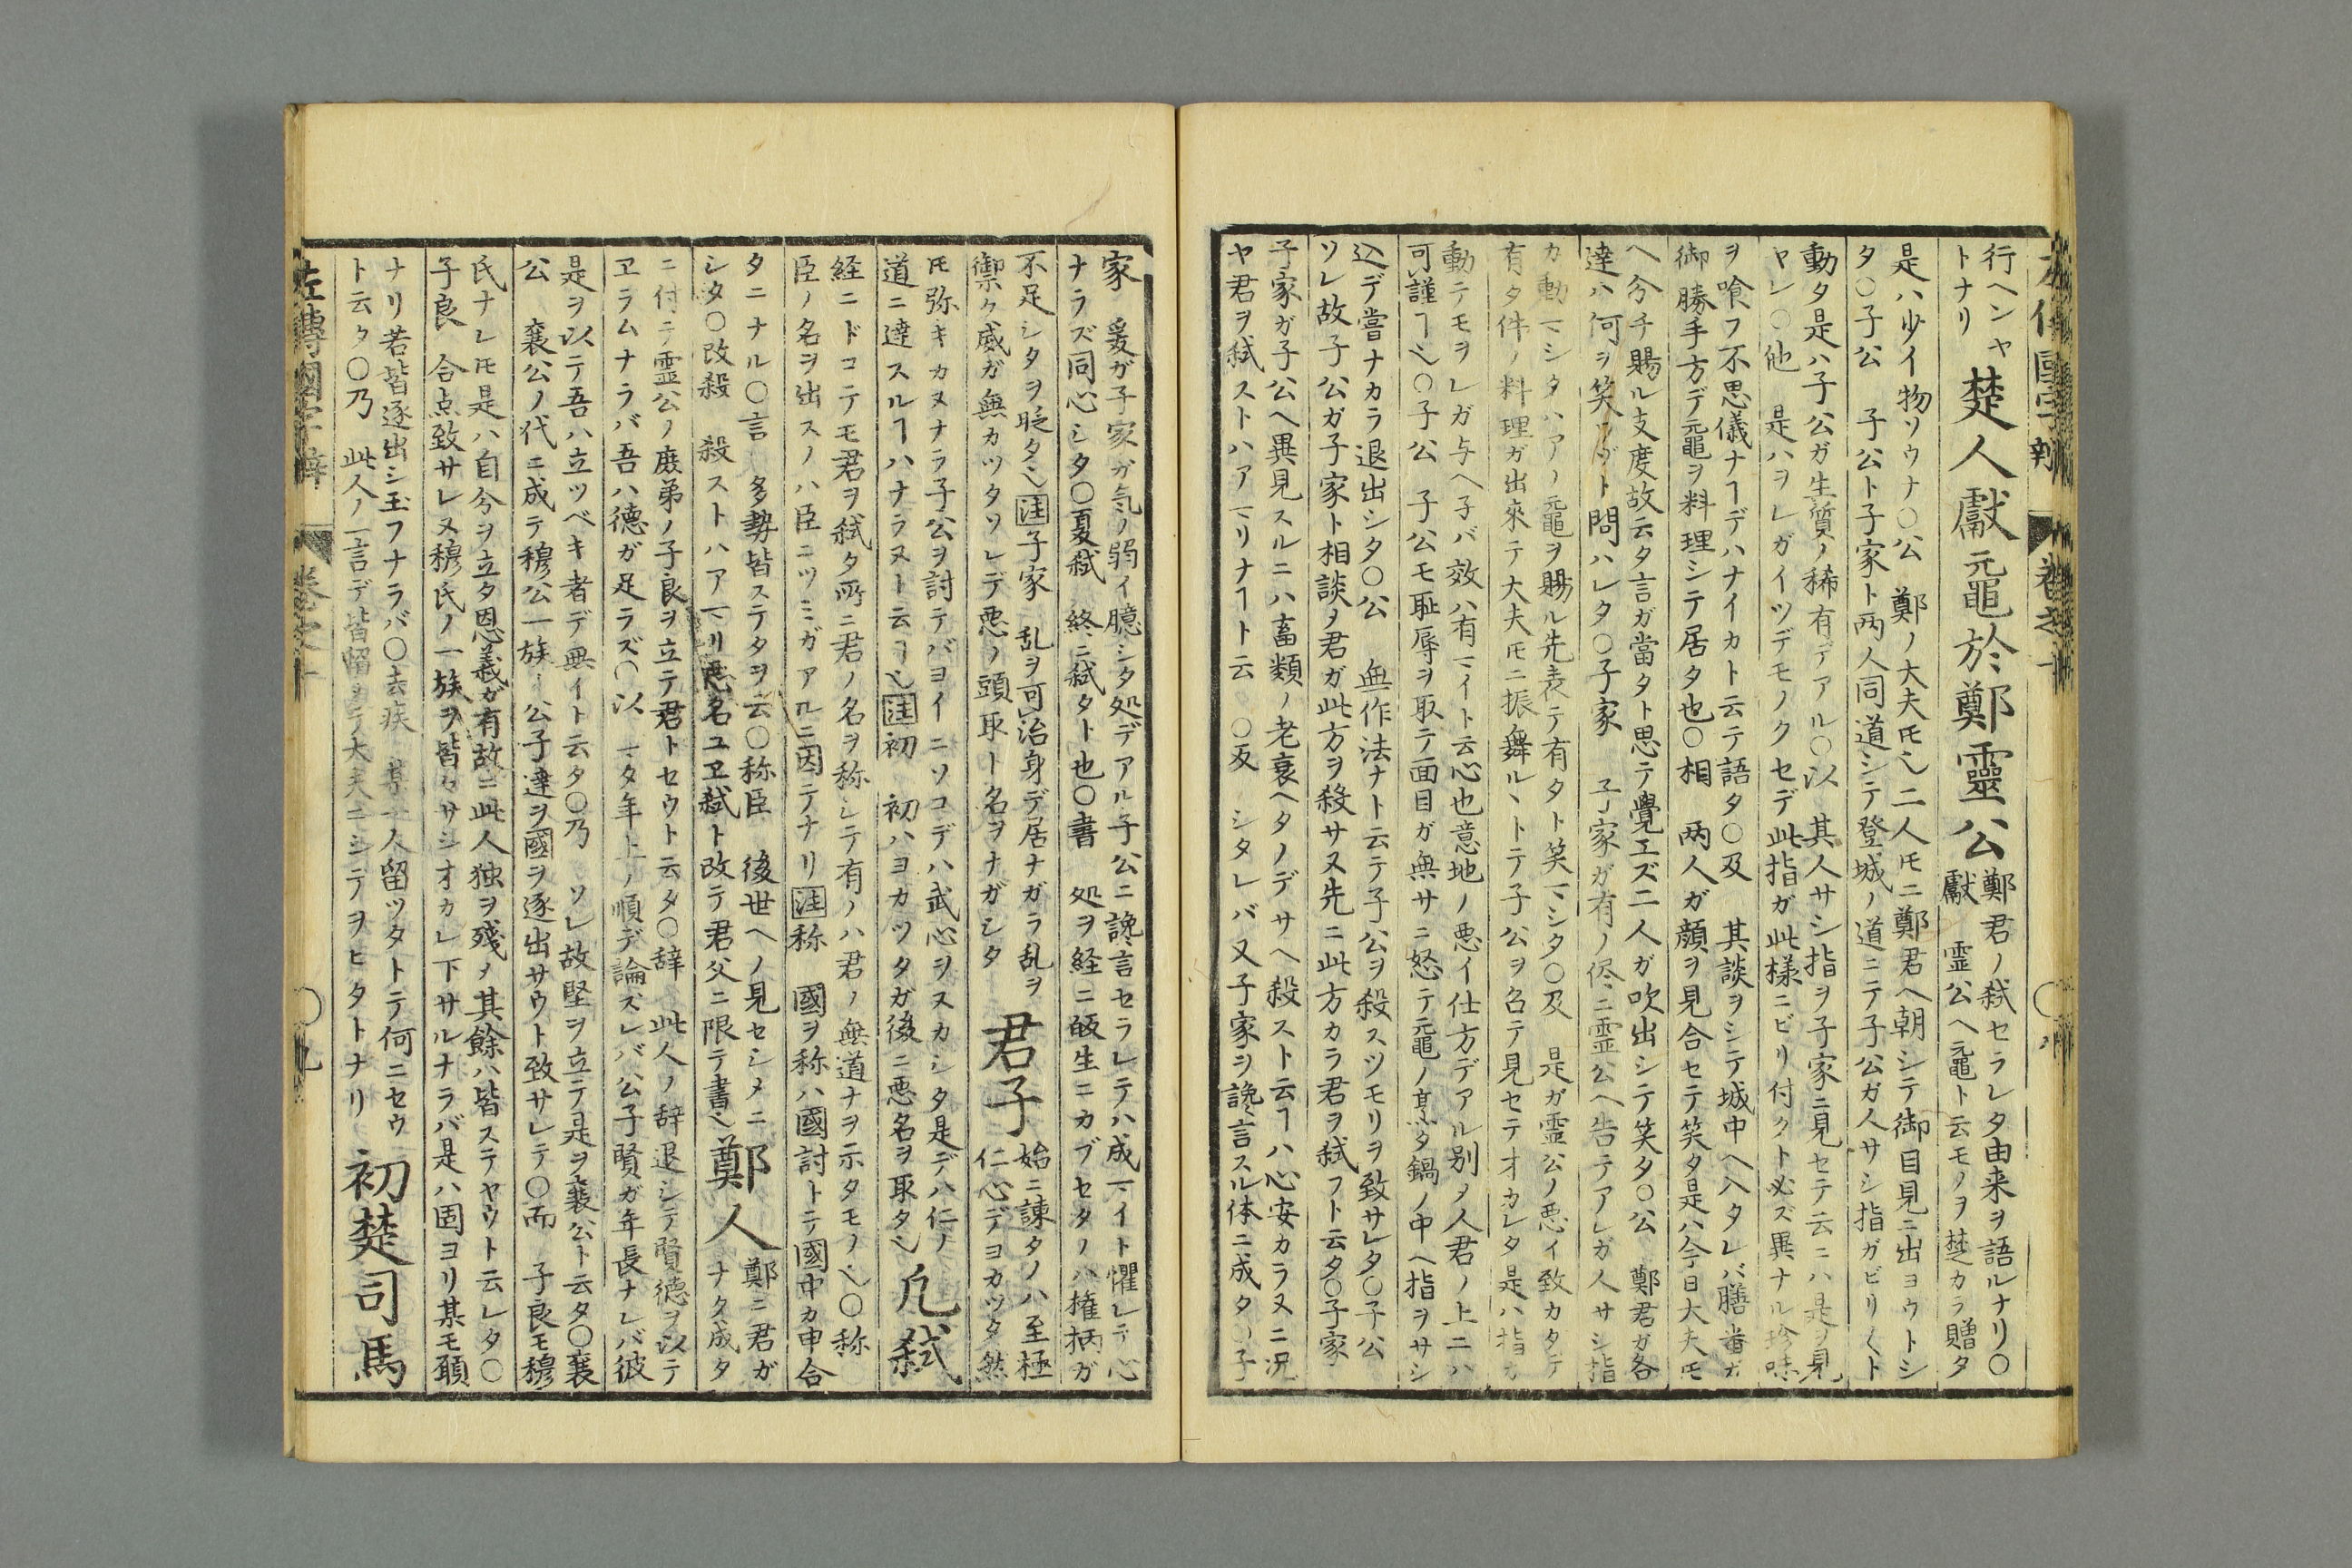 行ヘンヤ
トナリ
楚人獻黿於鄭靈公
鄭君ノ弑セラレタ由来ヲ語ルナリ〇
獻 霊公ヘ黿ト云モノヲ楚カラ贈タ
是ハ少イ物ソウナ〇公 鄭ノ大夫㽵也二人㽵ニ鄭君ヘ朝シテ御目見ニ出ヨウトシ
タ〇子公 子公ト子家ト両人同道シテ登城ノ道ニテ子公ガ人サシ指ガビリ〱ト
動タ是ハ子公ガ生質ノ稀有デアル〇以 其人サシ指ヲ子家ニ見セテ云ニハ是ヲ見
ヤレ〇他 是ハヲレガイツデモノクセデ此指ガ此様ニビリ付クト必ズ異ナル珍味
ヲ喰フ不思儀ナヿデハナイカト云テ語タ〇及 其談ヲシテ城中ヘ入タレバ膳番ガ
御勝手方デ黿ヲ料理シテ居タ也〇相 両人ガ顔ヲ見合セテ笑タ是ハ今日大夫㽵
ヘ分チ賜ル支度故云タ言ガ當タト思テ覺エズ二人ガ吹出シテ笑タ〇公 鄭君ガ各
達ハ何ヲ笑ソト問ハレタ〇子家 子家ガ有ノ侭ニ霊公ヘ告テアレガ人サシ指
カ動マシタハアノ黿ヲ賜ル先表テ有タト笑マシタ〇及 是ガ霊公ノ悪イ致カタデ
有タ件ノ料理ガ出來テ大夫㽵ニ振舞ルヽトテ子公ヲ召テ見セテオカレタ是ハ指ガ
動テモヲレガ与ヘ子バ效ハ有マイト云心也意地ノ悪イ仕方デアル別メ人君ノ上ニハ
可謹ヿ也〇子公 子公モ耻辱ヲ取テ面目ガ無サニ怒テ黿ノ烹タ鍋ノ中ヘ指ヲサシ
込デ嘗ナカラ退出シタ〇公 無作法ナト云テ子公ヲ殺スツモリヲ致サレタ〇子公
ソレ故子公ガ子家ト相談メ君ガ此方ヲ殺サヌ先ニ此方カラ君ヲ弑フト云タ〇子家
子家ガ子公ヘ異見スルニハ畜類ノ老衰ヘタノデサヘ殺スト云ヿハ心安カラヌニ况
ヤ君ヲ弑ストハアマリナヿト云 〇反 シタレバ又子家ヲ讒言スル体ニ成タ〇子
家 爰ガ子家ガ気ノ弱イ臆シタ処デアル子公ニ讒言セラレテハ成マイト懼レテ心
ナラズ同心シタ〇夏弑 終ニ弑タト也〇書 処ヲ経ニ皈生ニカブセタノハ権柄ガ
不足シタヲ貶タ也注子家 乱ヲ可治身デ居ナガラ乱ヲ
禦ク威ガ無カツタソレデ悪ノ頭取ト名ヲナガシタ
君子
始ニ諫タノハ至極
仁心デヨカツタ然
㽵弥キカヌナラ子公ヲ討テバヨイニソコデハ武心ヲヌカシタ是デハ仁ノ
道ニ達スルヿハナラヌト云ヿ也注初 初ハヨカツタガ後ニ悪名ヲ取タ也
凡弑
経ニドコテモ君ヲ弑タ所ニ君ノ名ヲ称シテ有ノハ君ノ無道ナヲ示タモノ也〇称
臣ノ名ヲ出スノハ臣ニツミガアルニ因テナリ注称 國ヲ称ハ國討トテ國中カ申合
タニナル〇言 多勢皆ステタヲ云〇称臣 後世ヘノ見セシメニ
シタ〇改殺 殺ストハアマリ悪名ユヱ弑ト改テ君父ニ限テ書也
鄭人
鄭ニ君ガ
ナク成タ
ニ付テ霊公ノ庶弟ノ子良ヲ立テ君トセウト云タ〇辞 此人ノ辞退シテ賢德ヲ以テ
ヱラムナラバ吾ハ德ガ足ラズ〇以 マタ年上ノ順デ論ズレバ公子賢ガ年長ナレバ彼
是ヲ以テ吾ハ立ツベキ者デ無イト云タ〇乃 ソレ故堅ヲ立テ是ヲ襄公ト云タ〇襄
公 襄公ノ代ニ成テ穆公一族ノ公子達ヲ國ヲ逐出サウト致サレテ〇而 子良モ穆
氏ナレ㽵是ハ自分ヲ立タ恩義ガ有故ニ此人独ヲ残メ其餘ハ皆ステヤウト云レタ〇
子良 合点致サレヌ穆氏ノ一族ヲ皆々サシオカレ下サルナラバ是ハ固ヨリ某モ願
ナリ若皆逐出シ玉フナラバ〇去疾 某一人留ツタトテ何ニセウ
ト云タ〇乃 此人ノ一言デ皆留ヲテ大夫ニシテヲヒタトナリ
初楚司馬
左傳國字辯